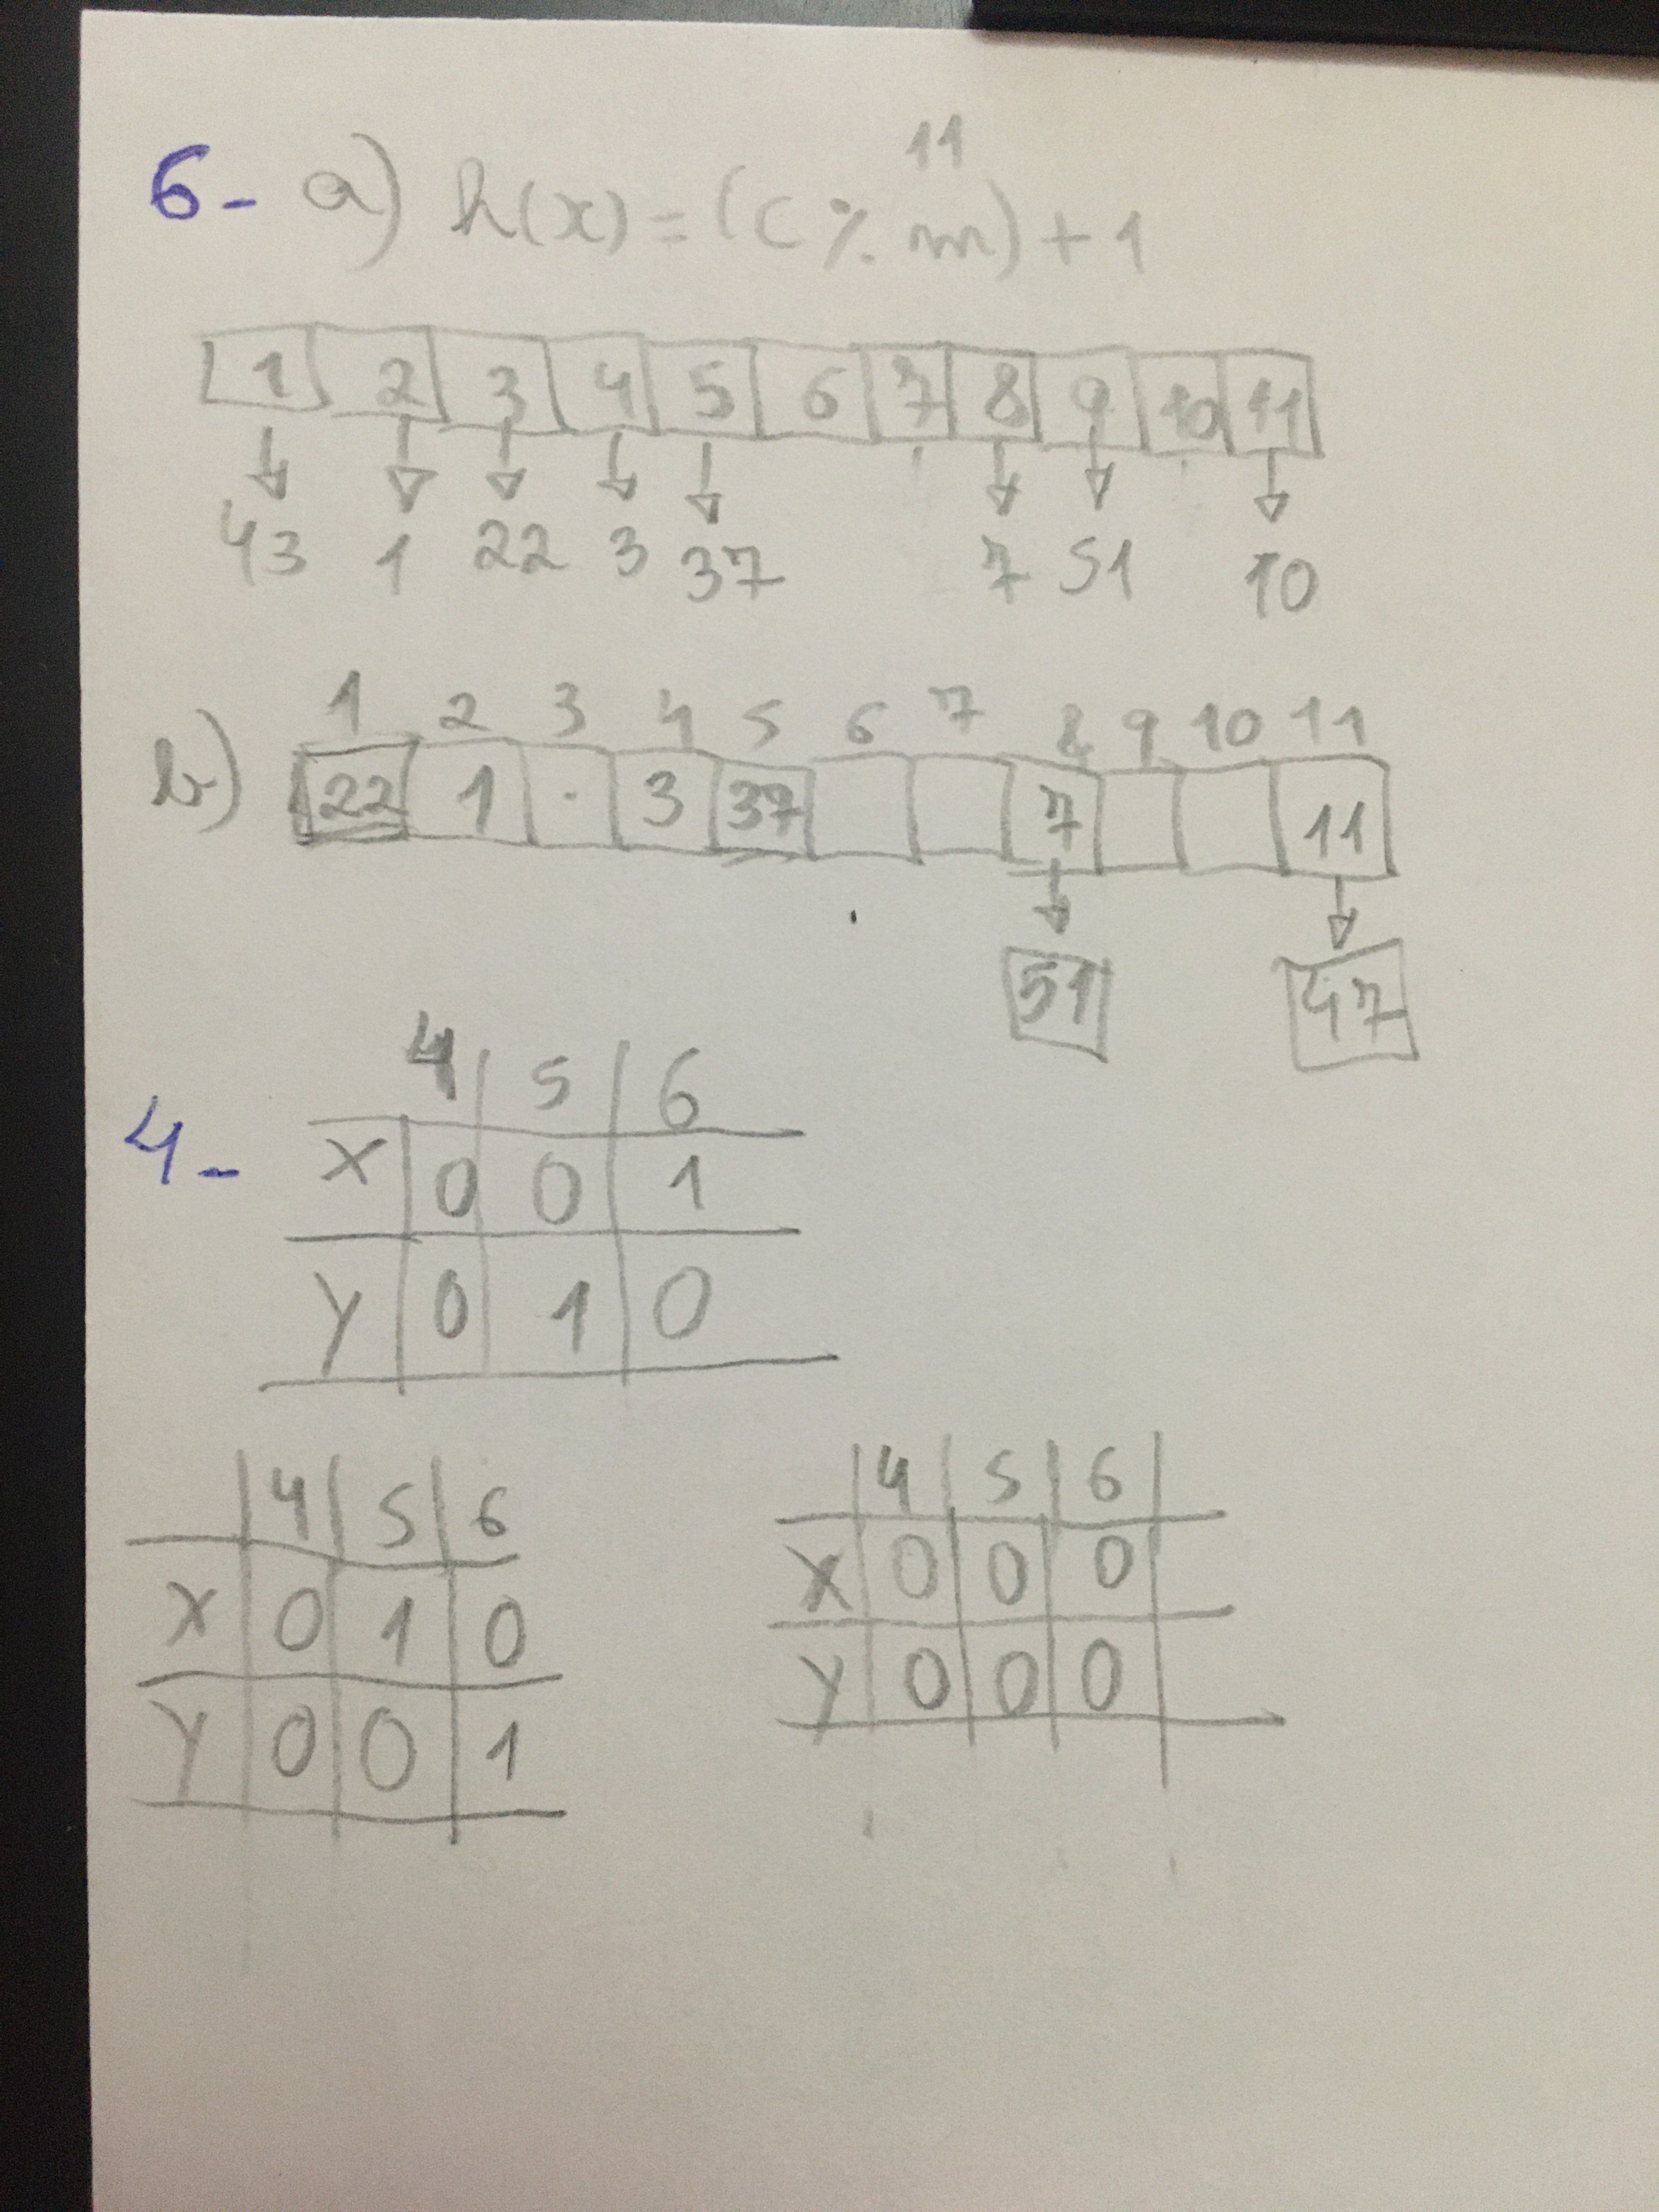 11
6- a) h(x) = (C % m) + 1
1 2 3 4 5 6 7 8 9 10 11
43 1 22 3 37 7 51 10
1 2 3 4 5 6 7 8 9 10 11
b) 22 1 · 3 37 7 11
51 47
4 5 6
4- X 0 0 1
Y 0 1 0
4 5 6
X 0 1 0
Y 0 0 1
4 5 6
X 0 0 0
Y 0 0 0